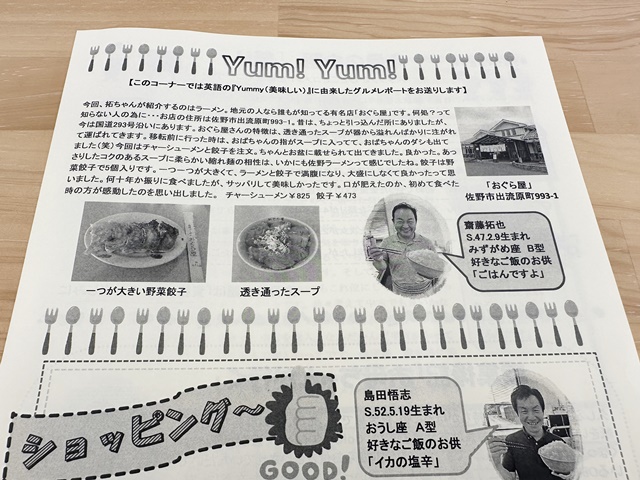 Yum! Yum!
【このコーナーでは英語の『Yummy（美味しい）』に由来したグルメレポートをお送りします】
今回、拓ちゃんが紹介するのはラーメン。地元の人なら誰もが知ってる有名店「おぐら屋」です。何処？って
知らない人の為に・・・お店の住所は佐野市出流原町993-1。昔は、ちょっと引っ込んだ所にありましたが、
今は国道293号沿いにあります。おぐら屋さんの特徴は、透き通ったスープが器から溢れんばかりに注がれ
て運ばれてきます。移転前に行った時は、おばちゃんの指がスープに入ってて、おばちゃんのダシも出て
ました（笑）今回はチャーシューメンと餃子を注文。ちゃんとお盆に載せられて出てきました。良かった。あっ
さりしたコクのあるスープに柔らかい縮れ麺の相性は、いかにも佐野ラーメンって感じでしたね。餃子は野
菜餃子で5個入りです。一つ一つが大きくて、ラーメンと餃子で満腹になり、大盛にしなくて良かったって思
いました。何十年か振りに食べましたが、サッパリして美味しかったです。口が肥えたのか、初めて食べた
時の方が感動したのを思い出しました。 チャーシューメン￥825 餃子￥473
「おぐら屋」
佐野市出流原町993-1
一つが大きい野菜餃子
透き通ったスープ
齋藤拓也
S.47.2.9生まれ
みずがめ座 B型
好きなご飯のお供
「ごはんですよ」
ショッピング～
GOOD!
島田悟志
S.52.5.19生まれ
おうし座 A型
好きなご飯のお供
「イカの塩辛」